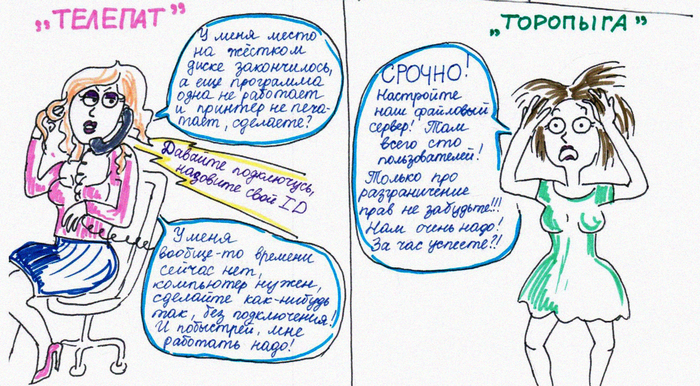 „ТЕЛЕПАТ”
У меня место
на жёстком
диске закончилось,
а еще программа
одна не работает
и принтер не печа-
тает, сделаете?
Давайте подключусь,
назовите свой ID
У меня
вообще-то времени
сейчас нет,
компьютер нужен,
сделайте как-нибудь
так, без подключения!
И побыстрей, мне
работать надо!
„ТОРОПЫГА”
СРОЧНО!
Настройте
наш файловый
сервер! Там
всего сто
пользователей!
Только про
разграничение
прав не забудьте!!!
Нам очень надо!
За час успеете?!